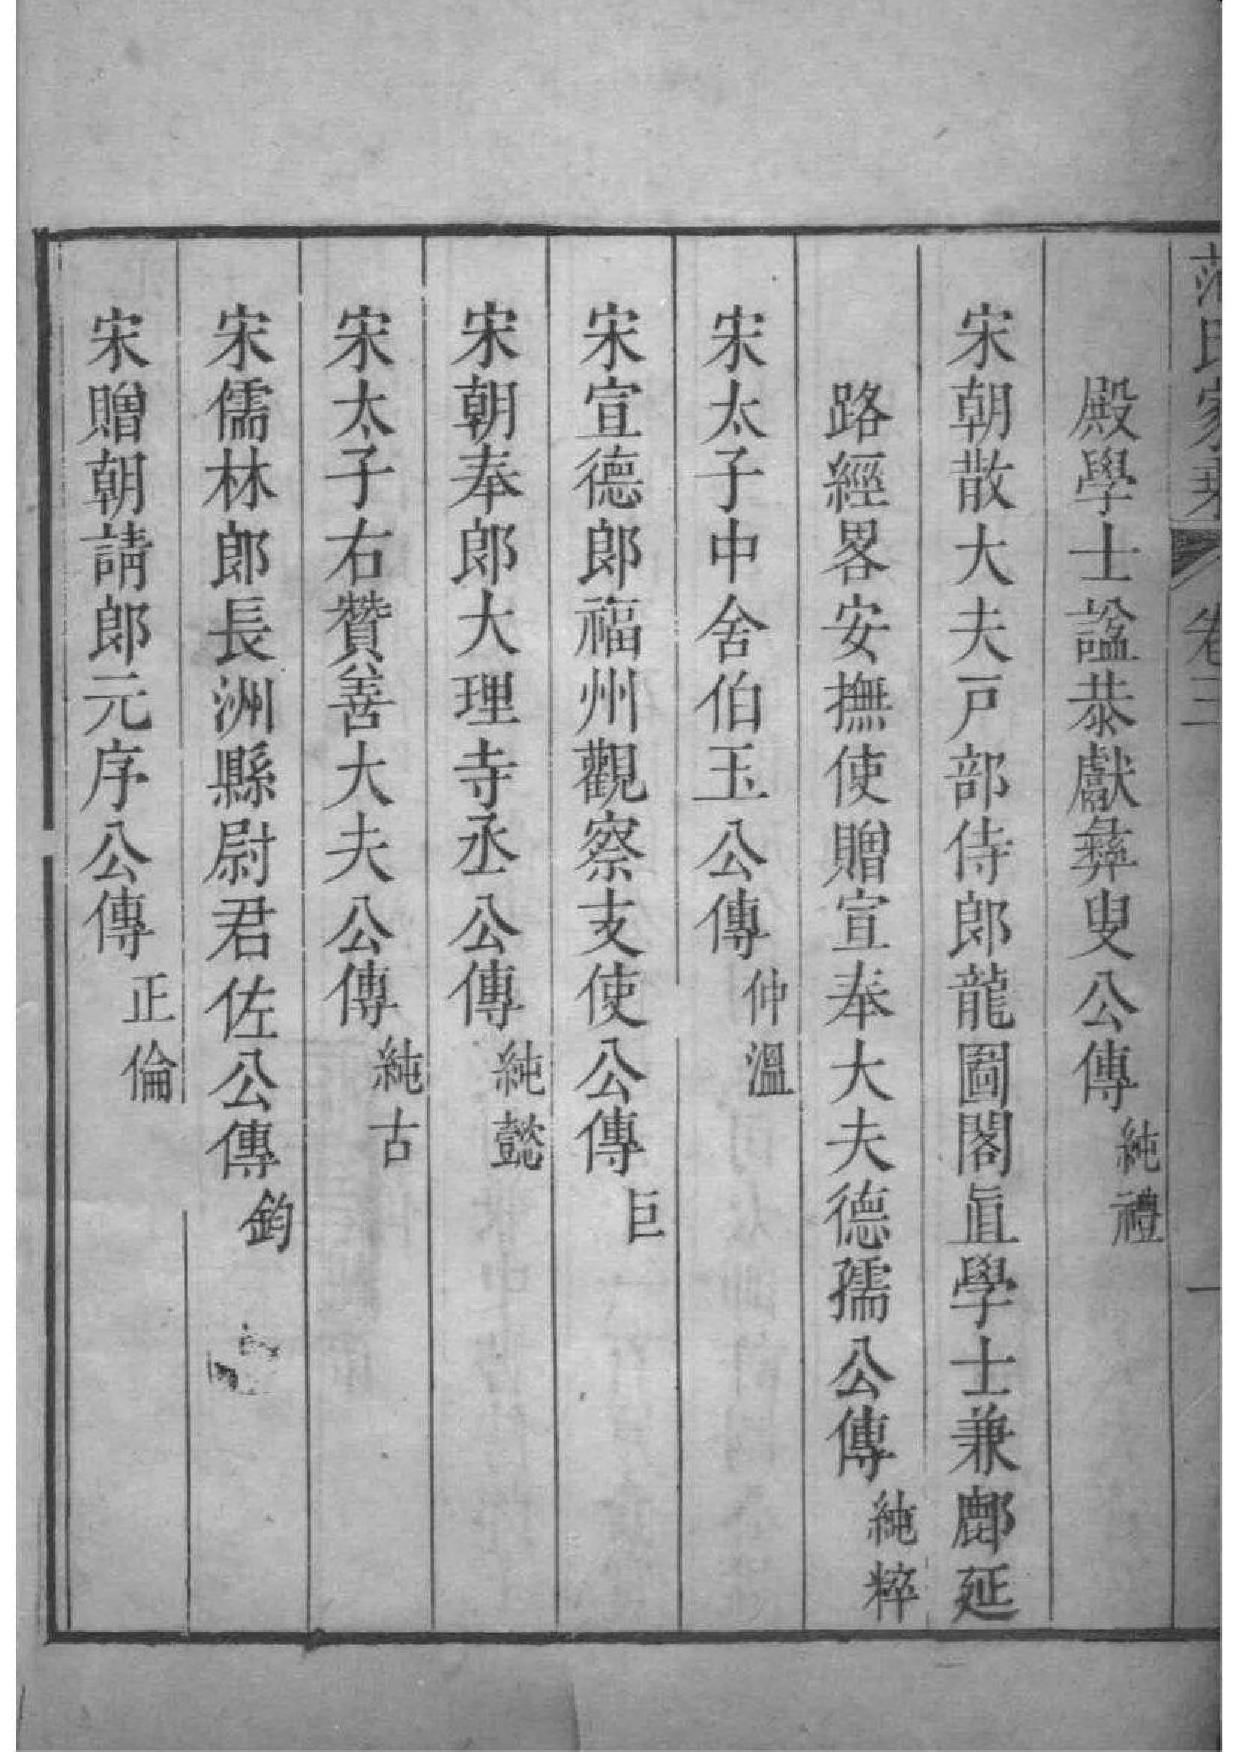 范氏家乘 卷三 一
殿學士諡恭獻彝叟公傳 純禮
宋朝散大夫戸部侍郎龍圖閣直學士兼鄜延
路經畧安撫使贈宣奉大夫德孺公傳 純粹
宋太子中舍伯玉公傳 仲溫
宋宣德郎福州觀察支使公傳 巨
宋朝奉郎大理寺丞公傳 純懿
宋太子右贊善大夫公傳 純古
宋儒林郎長洲縣尉君佐公傳 鈞
宋贈朝請郎元序公傳 正倫